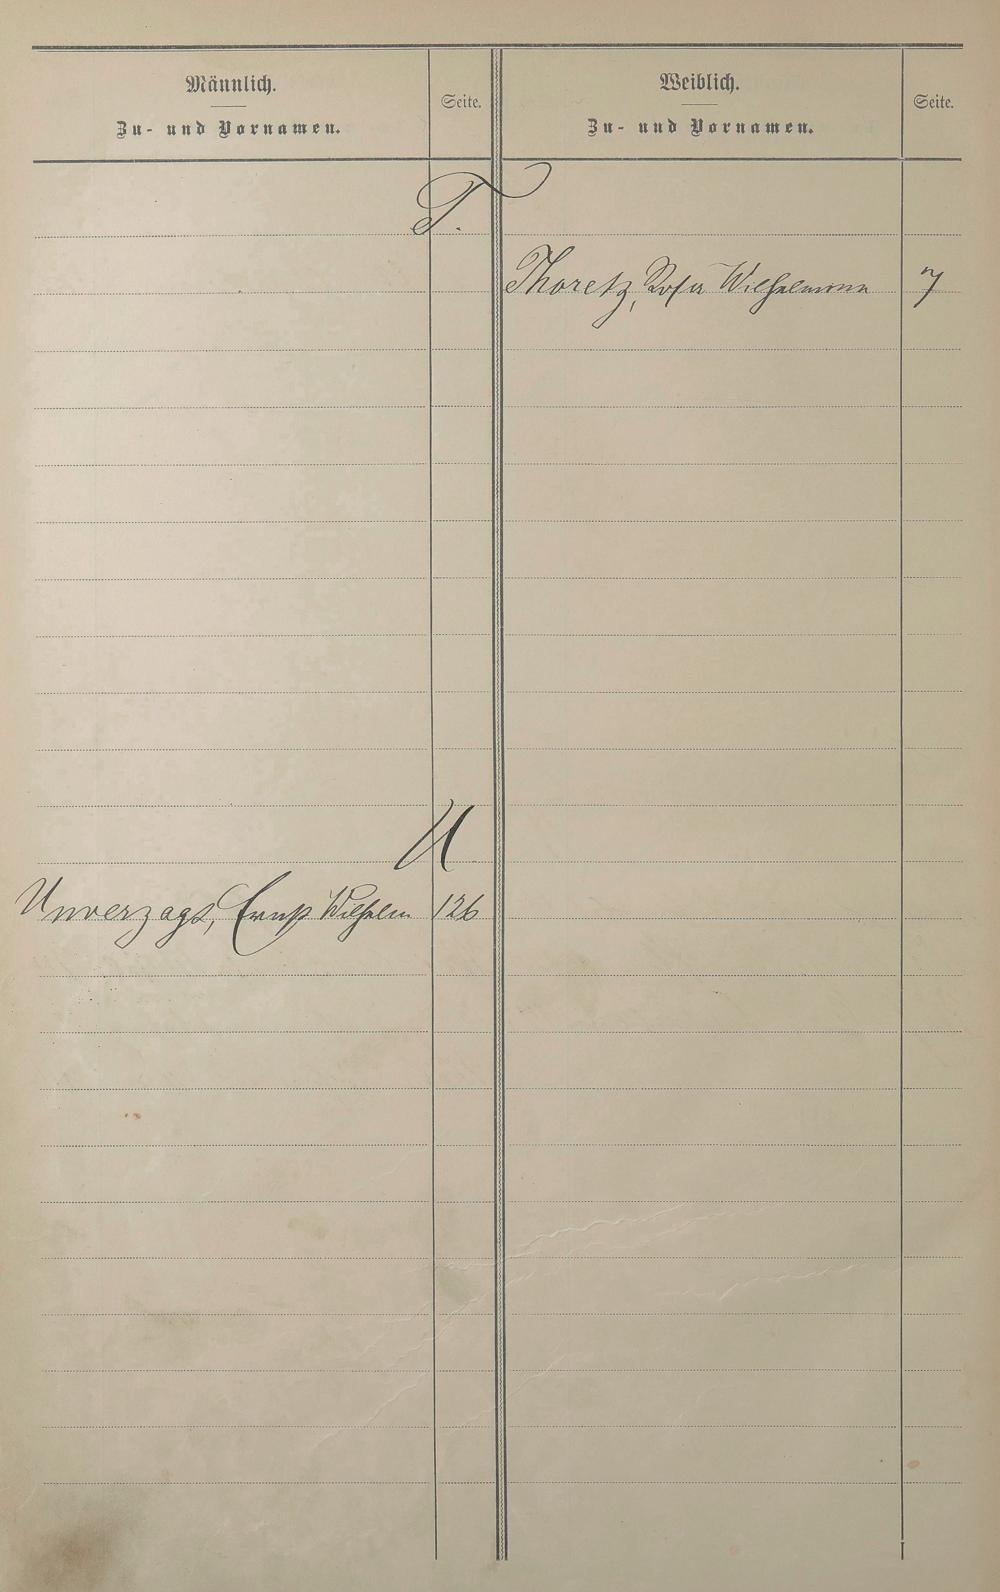 Männlich.
Zu- und Vornamen.
Seite.
Weiblich.
Zu- und Vornamen.
Seite.
T.
Thoretz, Rosa Wilhelmina 7
U
Unverzagt, Ernst Wilhelm 126